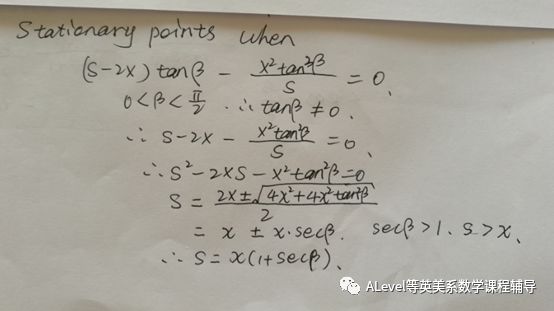 Stationary points when
(S-2x) tanβ - x²tan²β/S = 0.
0<β<π/2 ∴ tanβ ≠ 0.
∴ S-2x - x²tan²β/S = 0.
∴ S²-2xS-x²tan²β=0
S = 2x±√4x²+4x²tan²β/2
= x ± x·secβ. secβ>1. S>x.
∴ S = x(1+secβ).
ALevel等英美系数学课程辅导